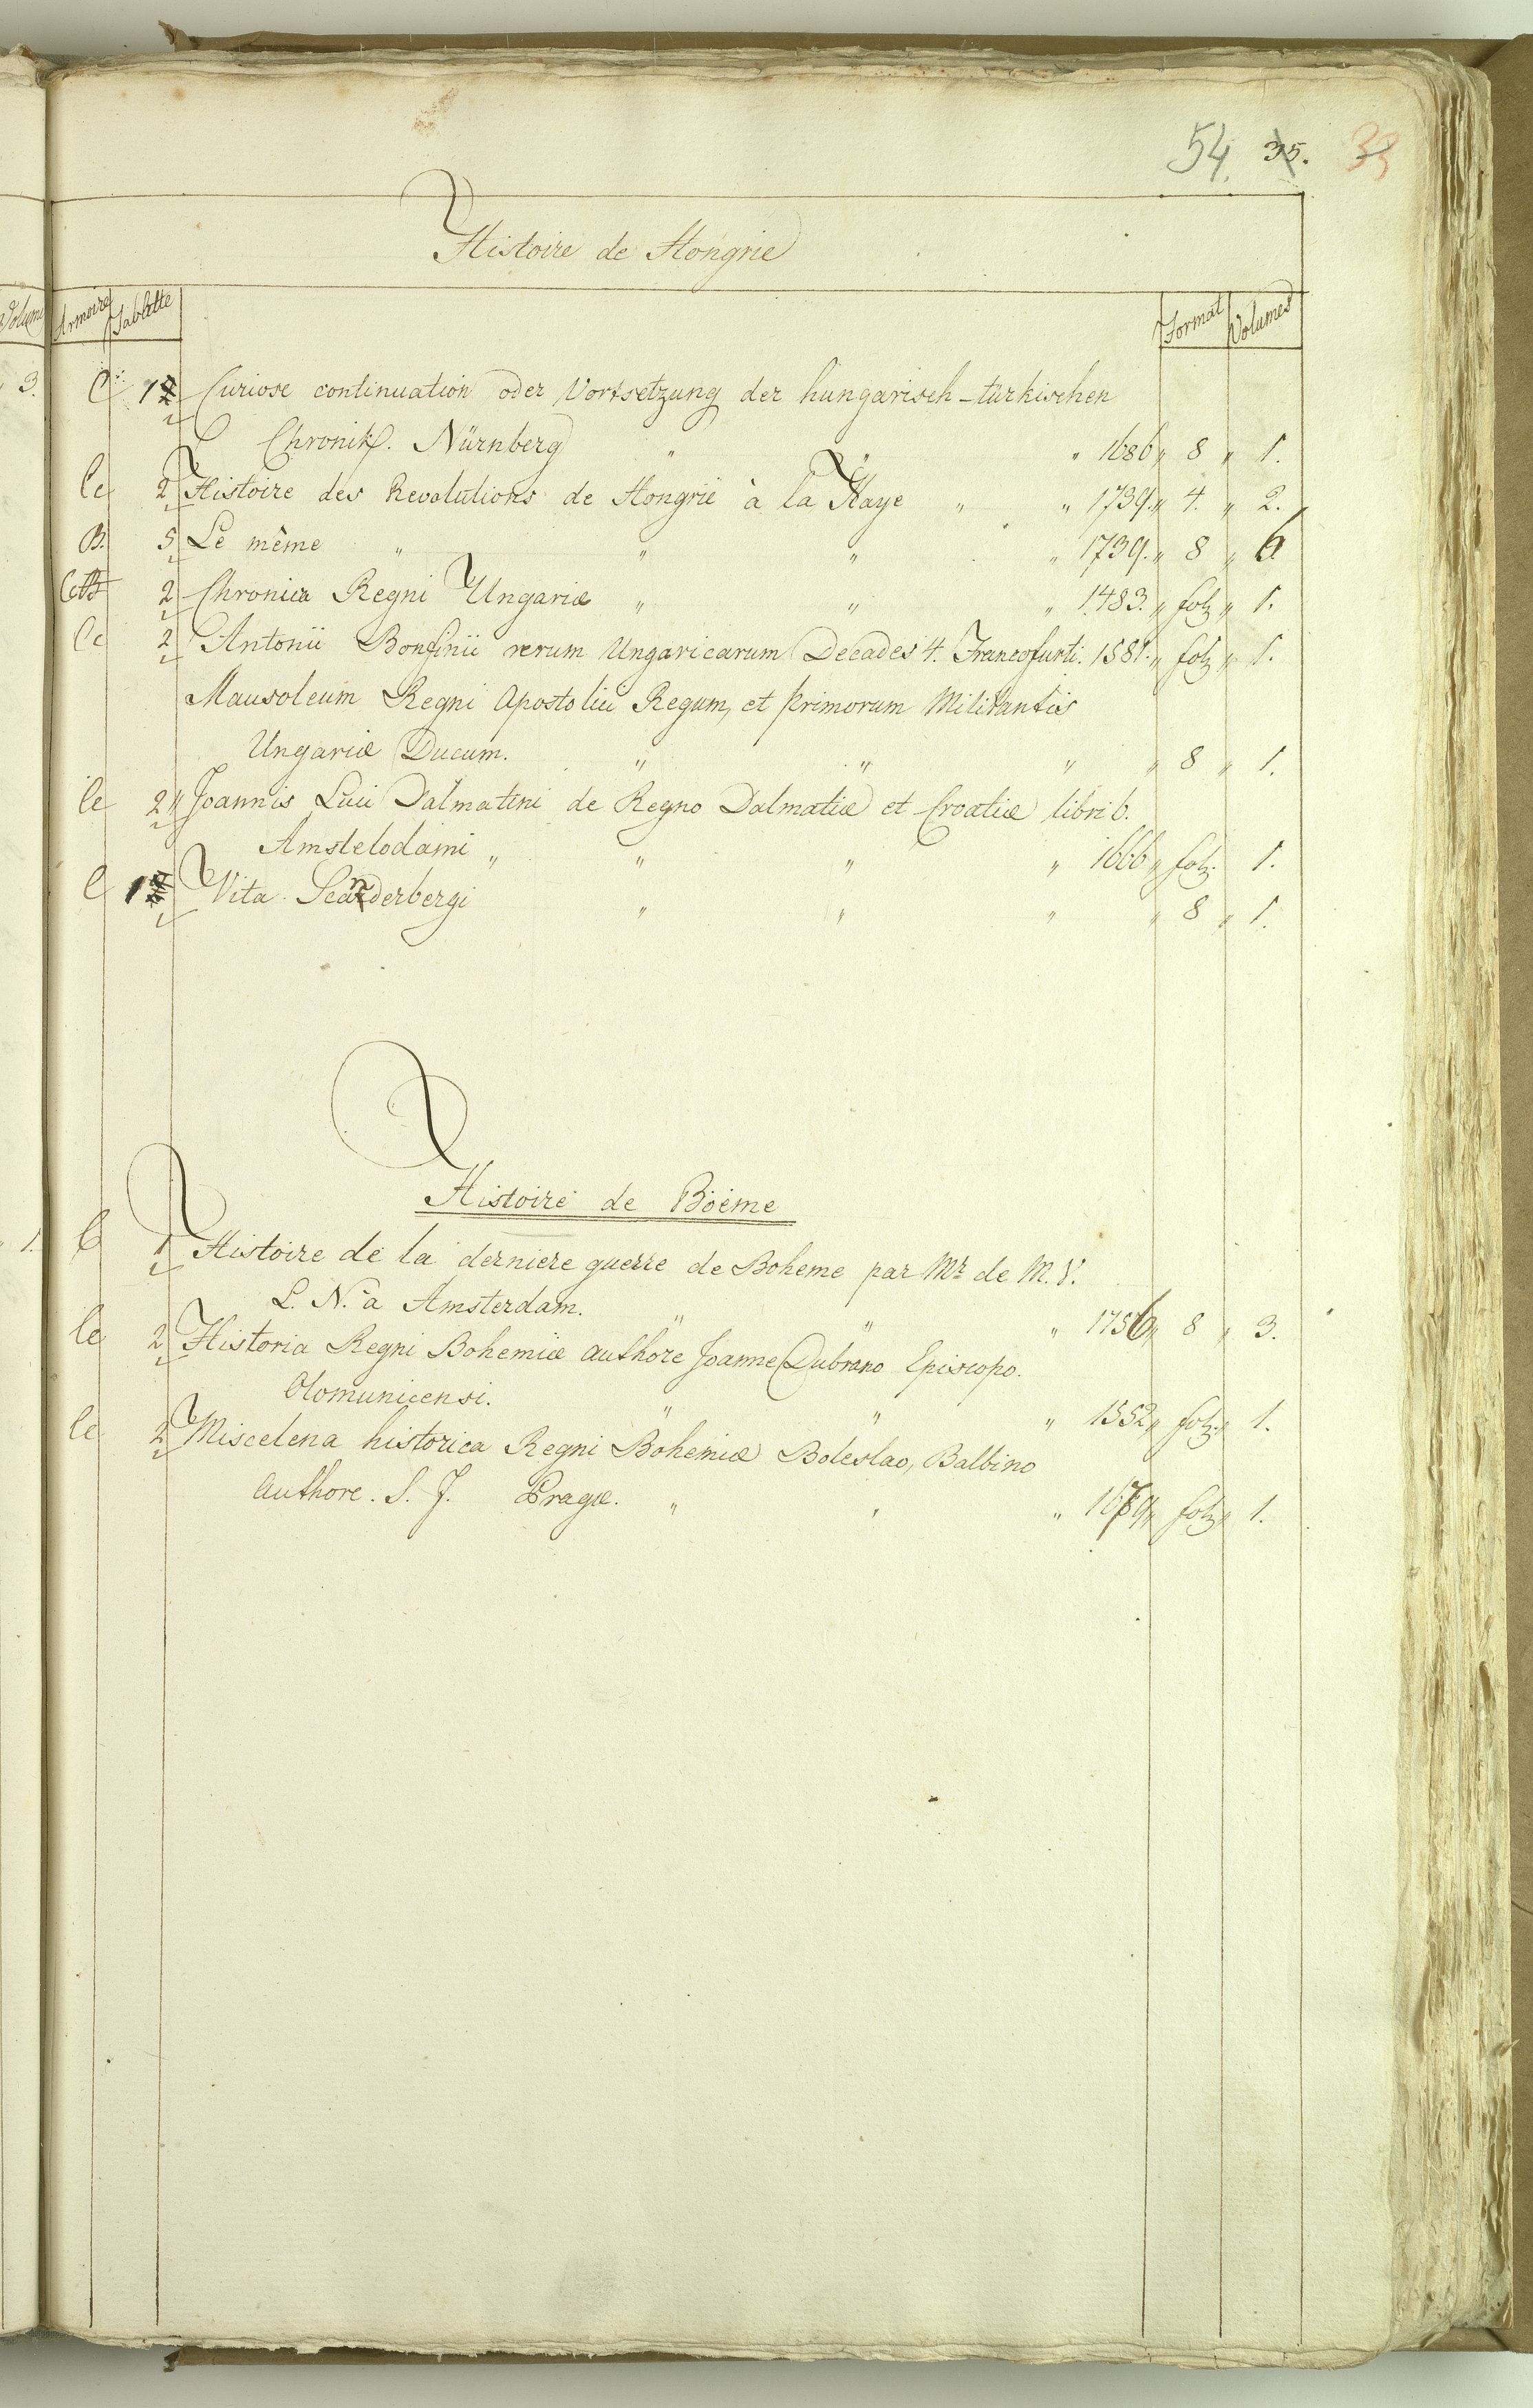 54. 35. 33
Histoire de Hongrie
Volume Armoire Tablette Format Volumes
3. C 1 Curiose continuation oder Vortsetzung der hungarisch-türkischen
Chronik. Nürnberg " " " 1686 " 8 " 1.
Cc 2 Histoire des Revolutions de Hongrie à la Haye " " 1739. " 4. " 2.
B. 5 Le même " " " " 1739. " 8 " 6
2 Chronica Regni Ungariæ " " " 1483. " fol " 1.
Cc 2 Antonii Bonfinii rerum Ungaricarum Decades 4. Francofurti. 1581. " fol " 1.
Mausoleum Regni Apostolici Regum, et primorum Militantis
Ungariæ Ducum. " " " " 8 " 1.
Cc 2 " Joannis Lucii Dalmatini de Regno Dalmatiæ et Croatiæ libri 6.
Amstelodami " " " " 1666 " fol. 1.
C 1 Vita Scanderbergi " " " " 8 " 1.
Histoire de Boëme
1. C 1 Histoire de la derniere guerre de Boheme par Mr de M. V.
L. N. à Amsterdam. " " " 1756 " 8 " 3.
Cc 2 Historia Regni Bohemiæ authore Joanne Dubravo Episcopo.
Olomunicensi. " " " 1552 " fol. " 1.
Cc 2 Miscelena historica Regni Bohemiæ Boleslao, Balbino
Authore. S. J. Pragæ. " " " 1679 " fol " 1.